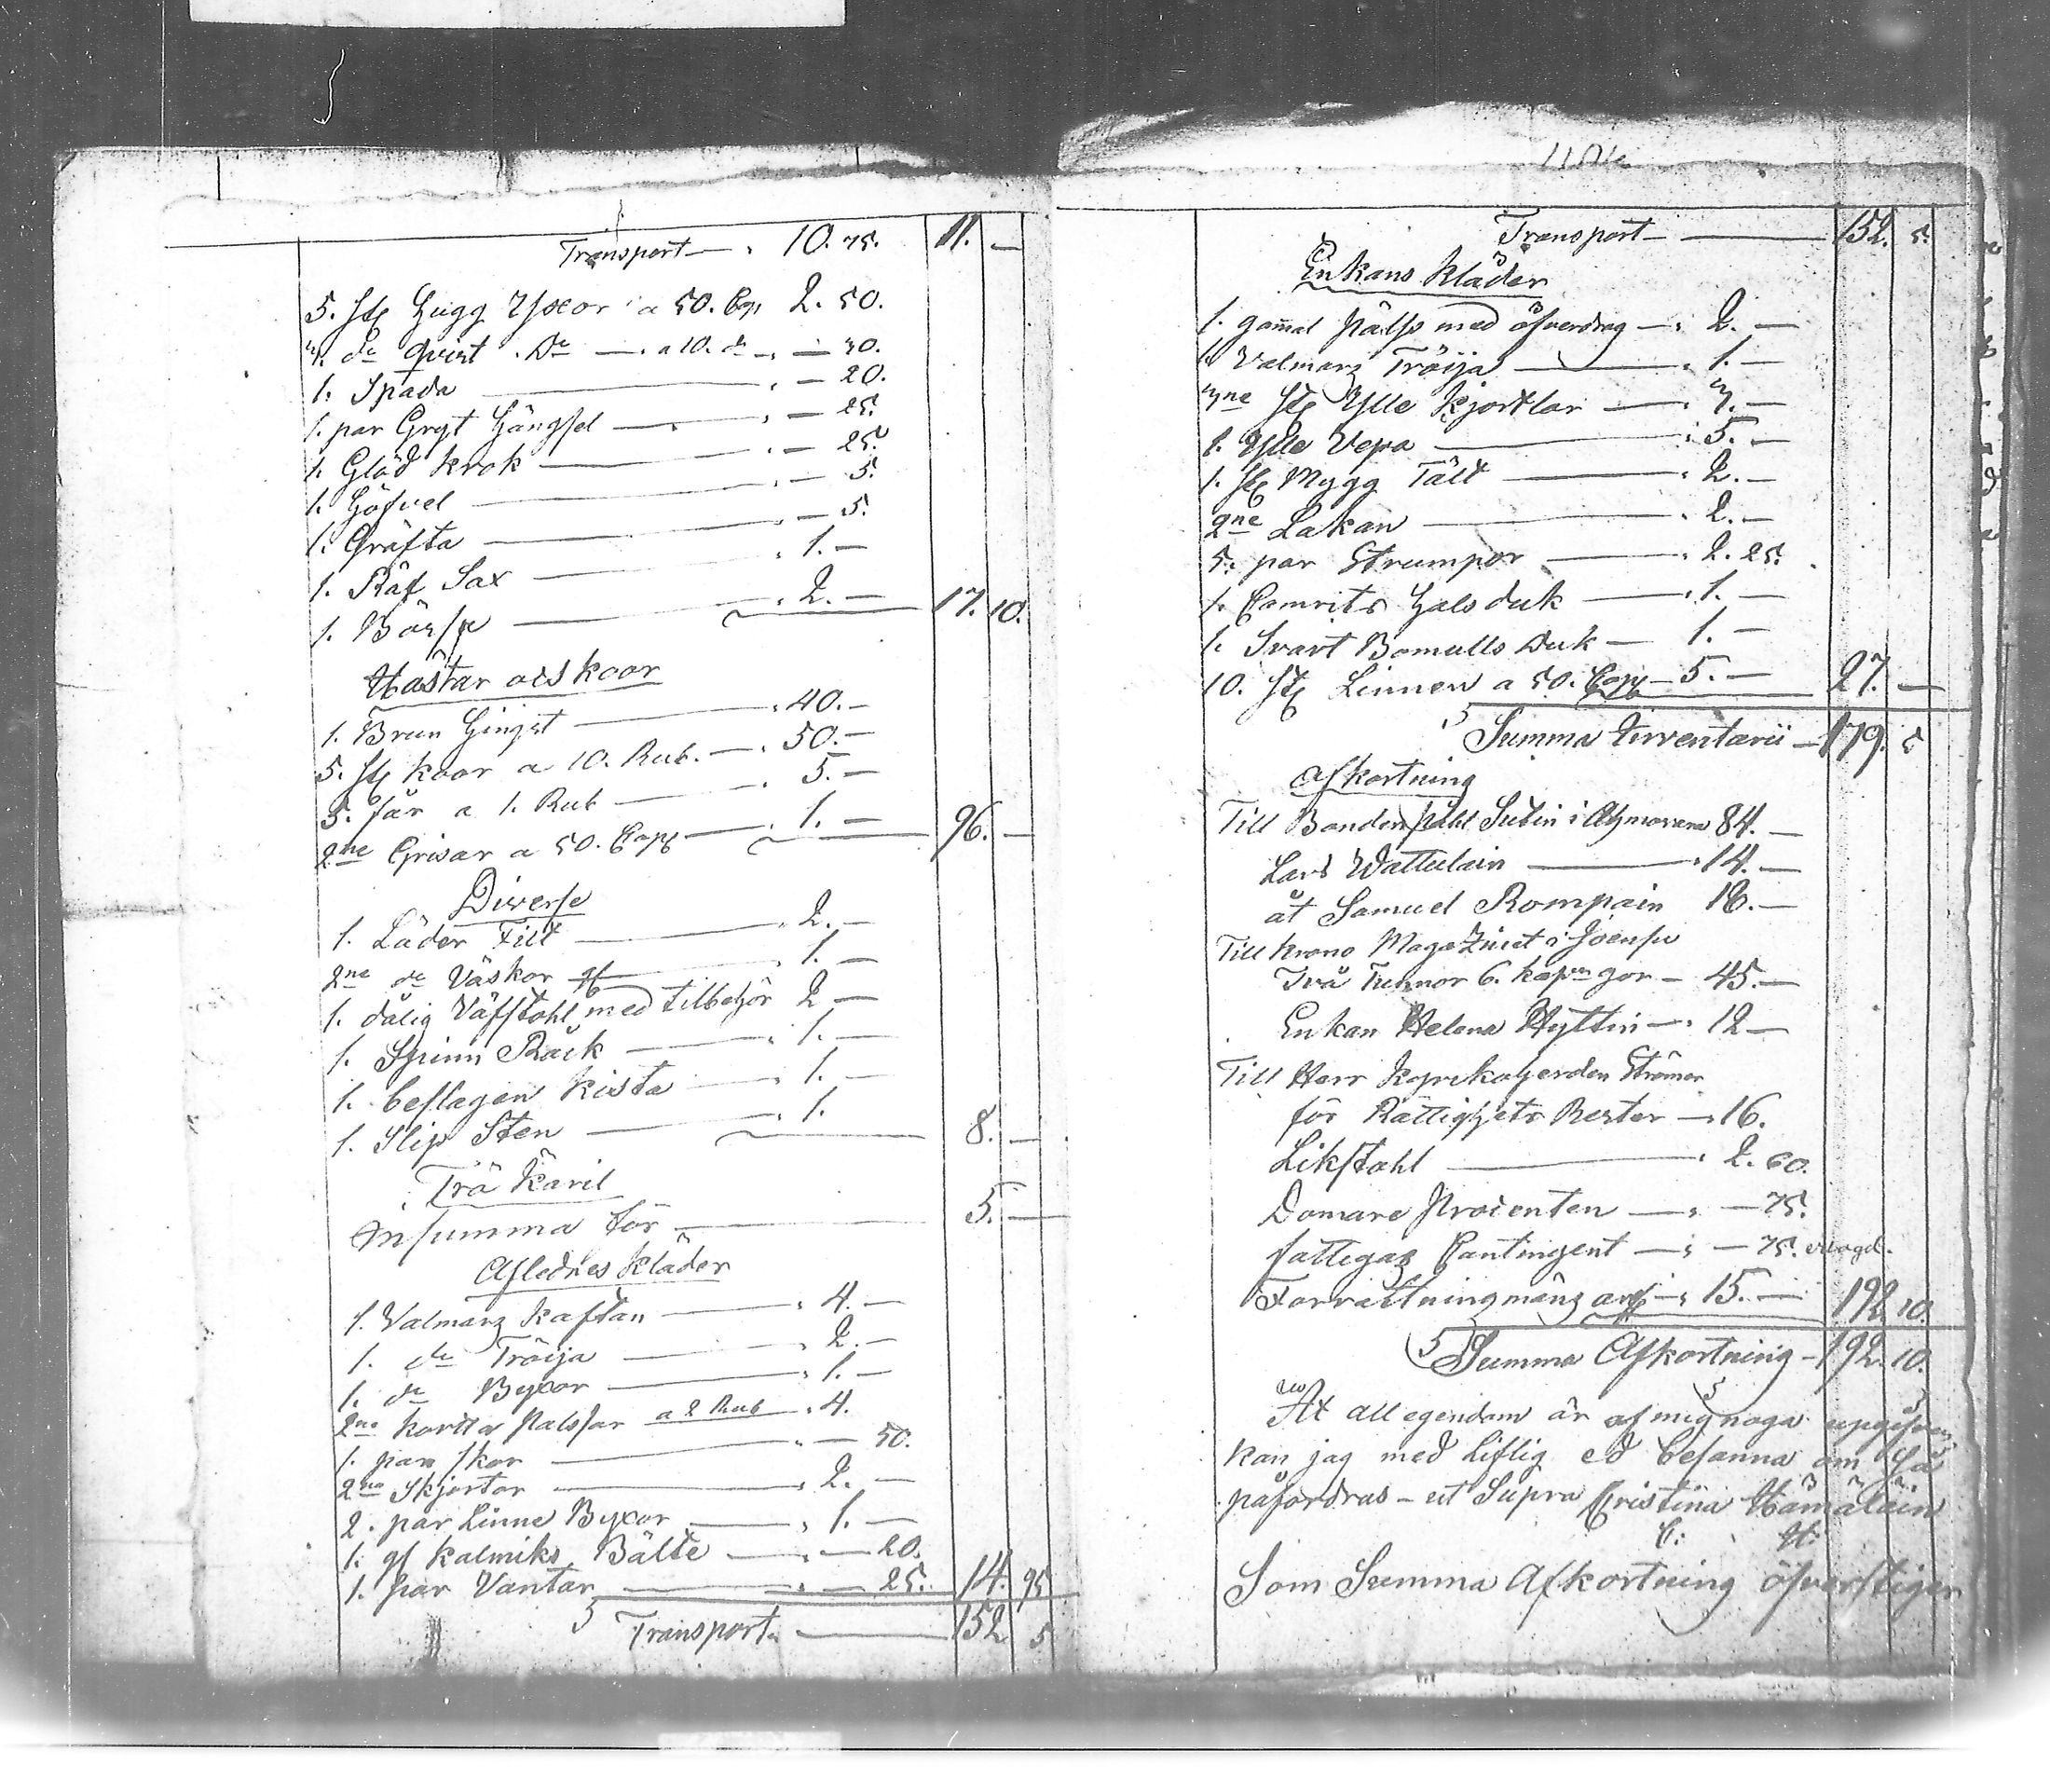 Transport — 10. 75. 11. —
5. st Hugg Yxor a 50. Cop 2. 50.
3. do Qvist Do — a 10. do — 30.
1. Spada — 20.
1. par Gryt Hängsel — 25.
1. Glöd krok — 25.
1. Höfvel — 5.
1. Gräfta — 5.
1. Räf Sax — 1. —
1. Bössa — 2. — 17. 10.
Hästar och koor
1. Brun Hingst — 40. —
5. st koor a 10. Rub. — 50. —
5. får a 1. Rub — 5. —
2ne Grisar a 50. Cop — 1. — 96. —
Diverse
1. Läder Filt — 2. —
2ne do Väskor — 1. —
1. dålig Väfstohl med tilbehör 2 —
1. Spinn Räck — 1. —
1. beslagen kista — 1. —
1. Slip Sten — 1. 8. —
Trä Käril
in summa för — 5. —
Aflednes kläder
1. Valmarz kaftan — 4. —
1. do Tröija — 2. —
1. do Byxor — 1. —
2ne kortta Pälssar a 2 Rub — 4.
1. par skor — 50.
2ne Skjortor — 2. —
2. par Linne Byxor — 1. —
1. gl kalmiks Bälte — 20.
1. par Vantar — 25. 14. 95
Transport — 152 5
Transport — 152. 5.
Enkans kläder
1. gammal pälss med öfverdrag — 2. —
1. Valmarz Tröija — 1. —
3ne st Ylle kjortlar — 7. —
1. Ylle Vepa — 5. —
1. st Mygg Tält — 2. —
2ne Lakan — 2. —
5. par Strumpor — 2. 25.
1. Camrits Halsduk — 1. —
1. Svart Bomulls Duk — 1. —
10. st Linnen a 50. Cop — 5. — 27. —
Summa Inventarii — 179. 5
Afkortning
Till Bonden påhl Subin i 84. —
Lars Wattulain — 14. —
åt Samuel Rompain 18. —
Till krono Magazinet i Joensu
Två Tunnor 6. kapr gor — 45. —
Enkan Helena Hyttin — 12 —
Till Herr Kyrckoherden Strömer
för Rättighets Rester — 16.
Likstohl — 2. 60.
Domare Procenten — 75.
fattigas Contingent — 75.
Förrättningmäns arf — 15. — 192 10.
Summa Afkortning — 192. 10.
At all egendom är af mig noga upgifven
kan jag med Liflig ed besanna om så
påfordras — ut Supra Cristina Hämäläin
C: H:
Som Summa Afkortning öfverstiger